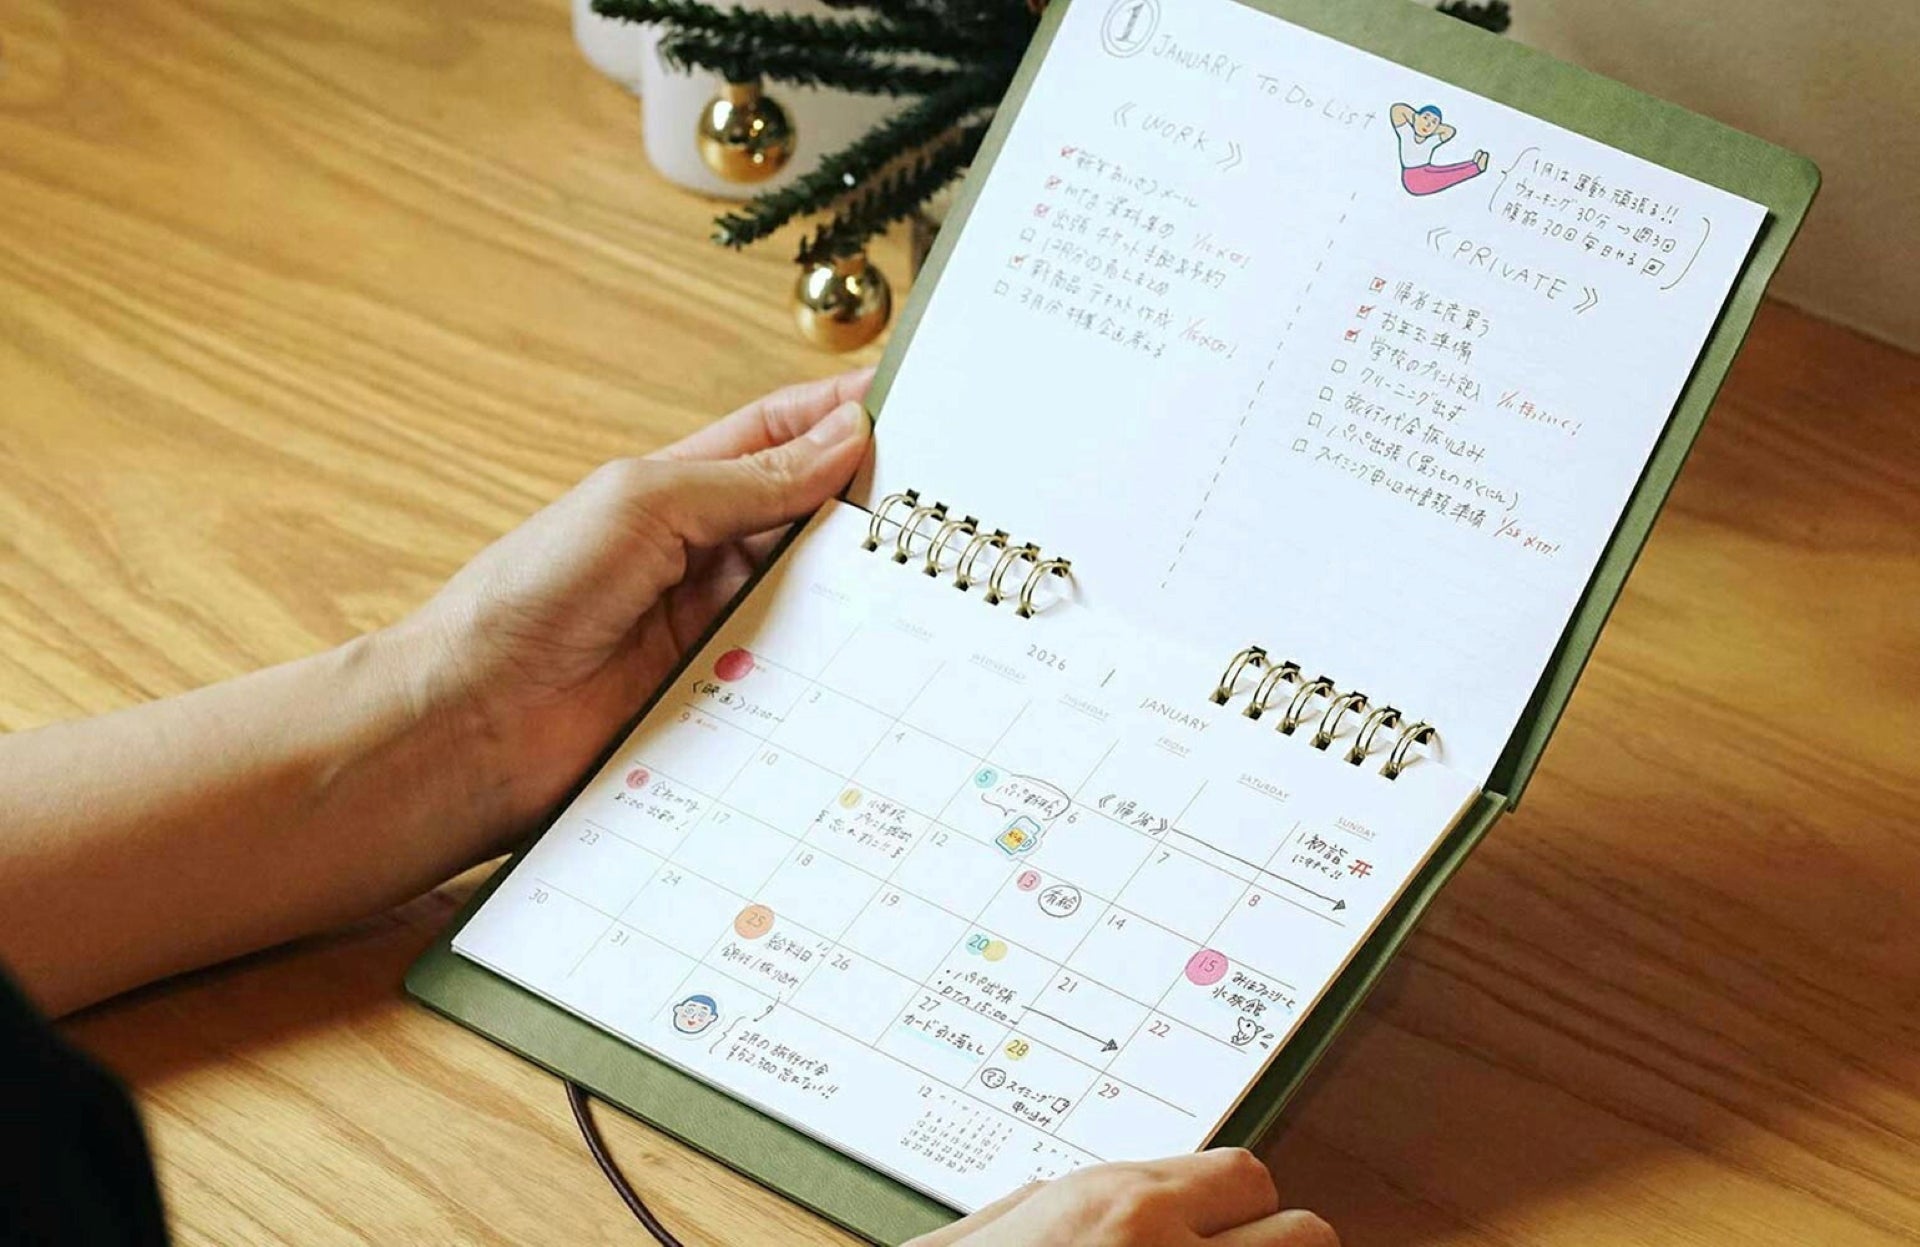 ① JANUARY TO DO LIST
1月は運動頑張る!!
ウォーキング30分→週3回
腹筋30回毎日やる
《WORK》
新年あいさつメール
mtg資料準備 1/12〆切!
出張チケット手配&予約
12月分の売上まとめ
新商品テキスト作成 1/15〆切!
3月分特集企画考える
《PRIVATE》
帰省土産買う
お年玉準備
学校のプリント記入 1/11持っていく!
クリーニング出す
旅行代金振り込み
パパ出張(買うものかくにん)
スイミング申し込み書類準備 1/28〆切!
2026 1 JANUARY
TUESDAY
WEDNESDAY
THURSDAY
FRIDAY
SATURDAY
SUNDAY
1 初詣
に行く!!
〈映画〉13:00〜
3
4
5 パパ新年会
6
《帰省》
7
8
9
10
11 小学校
プリント提出
忘れずに!!
12
13 有給
14
15 みほファミリーと
水族館
16 全社mtg
8:00 出る!
17
18
19
20
・パパ出張
・PTA 15:00〜
21
22
23
24
25 給料日
銀行/振り込み
26
27
カード引き落とし
28
スイミング
申し込み
29
30
31
2月の旅行代金
¥52,300忘れない!!
12
2